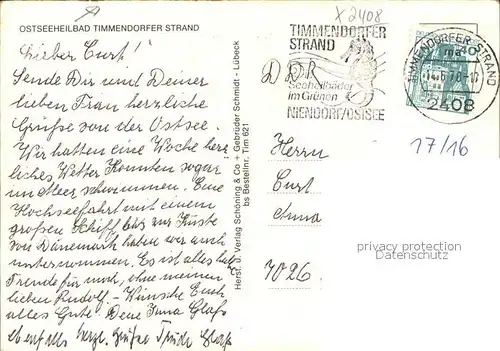 X 2408
OSTSEEHEILBAD TIMMENDORFER STRAND
Lieber Curt!
Sende Dir und Deiner
lieben Frau herzliche
Grüße von der Ostsee.
Wir hatten eine Woche herr
liches Wetter konnten sogar
im Meer schwimmen. Eine
Hochseefahrt mit einem
großen Schiff bis zur Küste
von Dänemark haben wir auch
unternommen. Es ist alles
Freude für mich, ohne meinen
lieben Rudolf. - Wünsche Euch
alles Gute. Deine Glaß
ebenfalls herzl. Grüße Trude Glaß
Herst. u. Verlag Schöning & Co + Gebrüder Schmidt - Lübeck
bs Bestellnr. Tim 621
TIMMENDORFER
STRAND
DDR
Seeheilbäder
im Grünen
NIENDORF/OSTSEE
TIMMENDORFER STRAND
2408
17/16
Herrn
Curt
7026
privacy protection